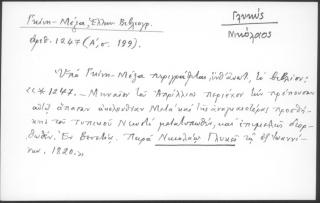 Γκίνη - Μέξα, Ἑλλην. Βιβλιογρ.
ἀριθ. 1247 (Α΄, σ. 199).
Γλυκύς
Νικόλαος
Ὑπὸ Γκίνη - Μέξα περιγράφεται τὸ βιβλίον:
«*1247. - Μηναῖον τοῦ Ἀπριλλίου περιέχον τὴν πρέπουσαν
αὐτῷ ἅπασαν ἀκολουθίαν Μετὰ καὶ τῆς ἀναγκαιοτάτης προσθή-
κης τοῦ Τυπικοῦ Νεωστὶ μετατυπωθέν, καὶ ἐπιμελῶς διορ-
θωθέν. Ἐν Βενετίᾳ. Παρὰ Νικολάῳ Γλυκεῖ τῷ ἐξ Ἰωαννί-
νων. 1820.»